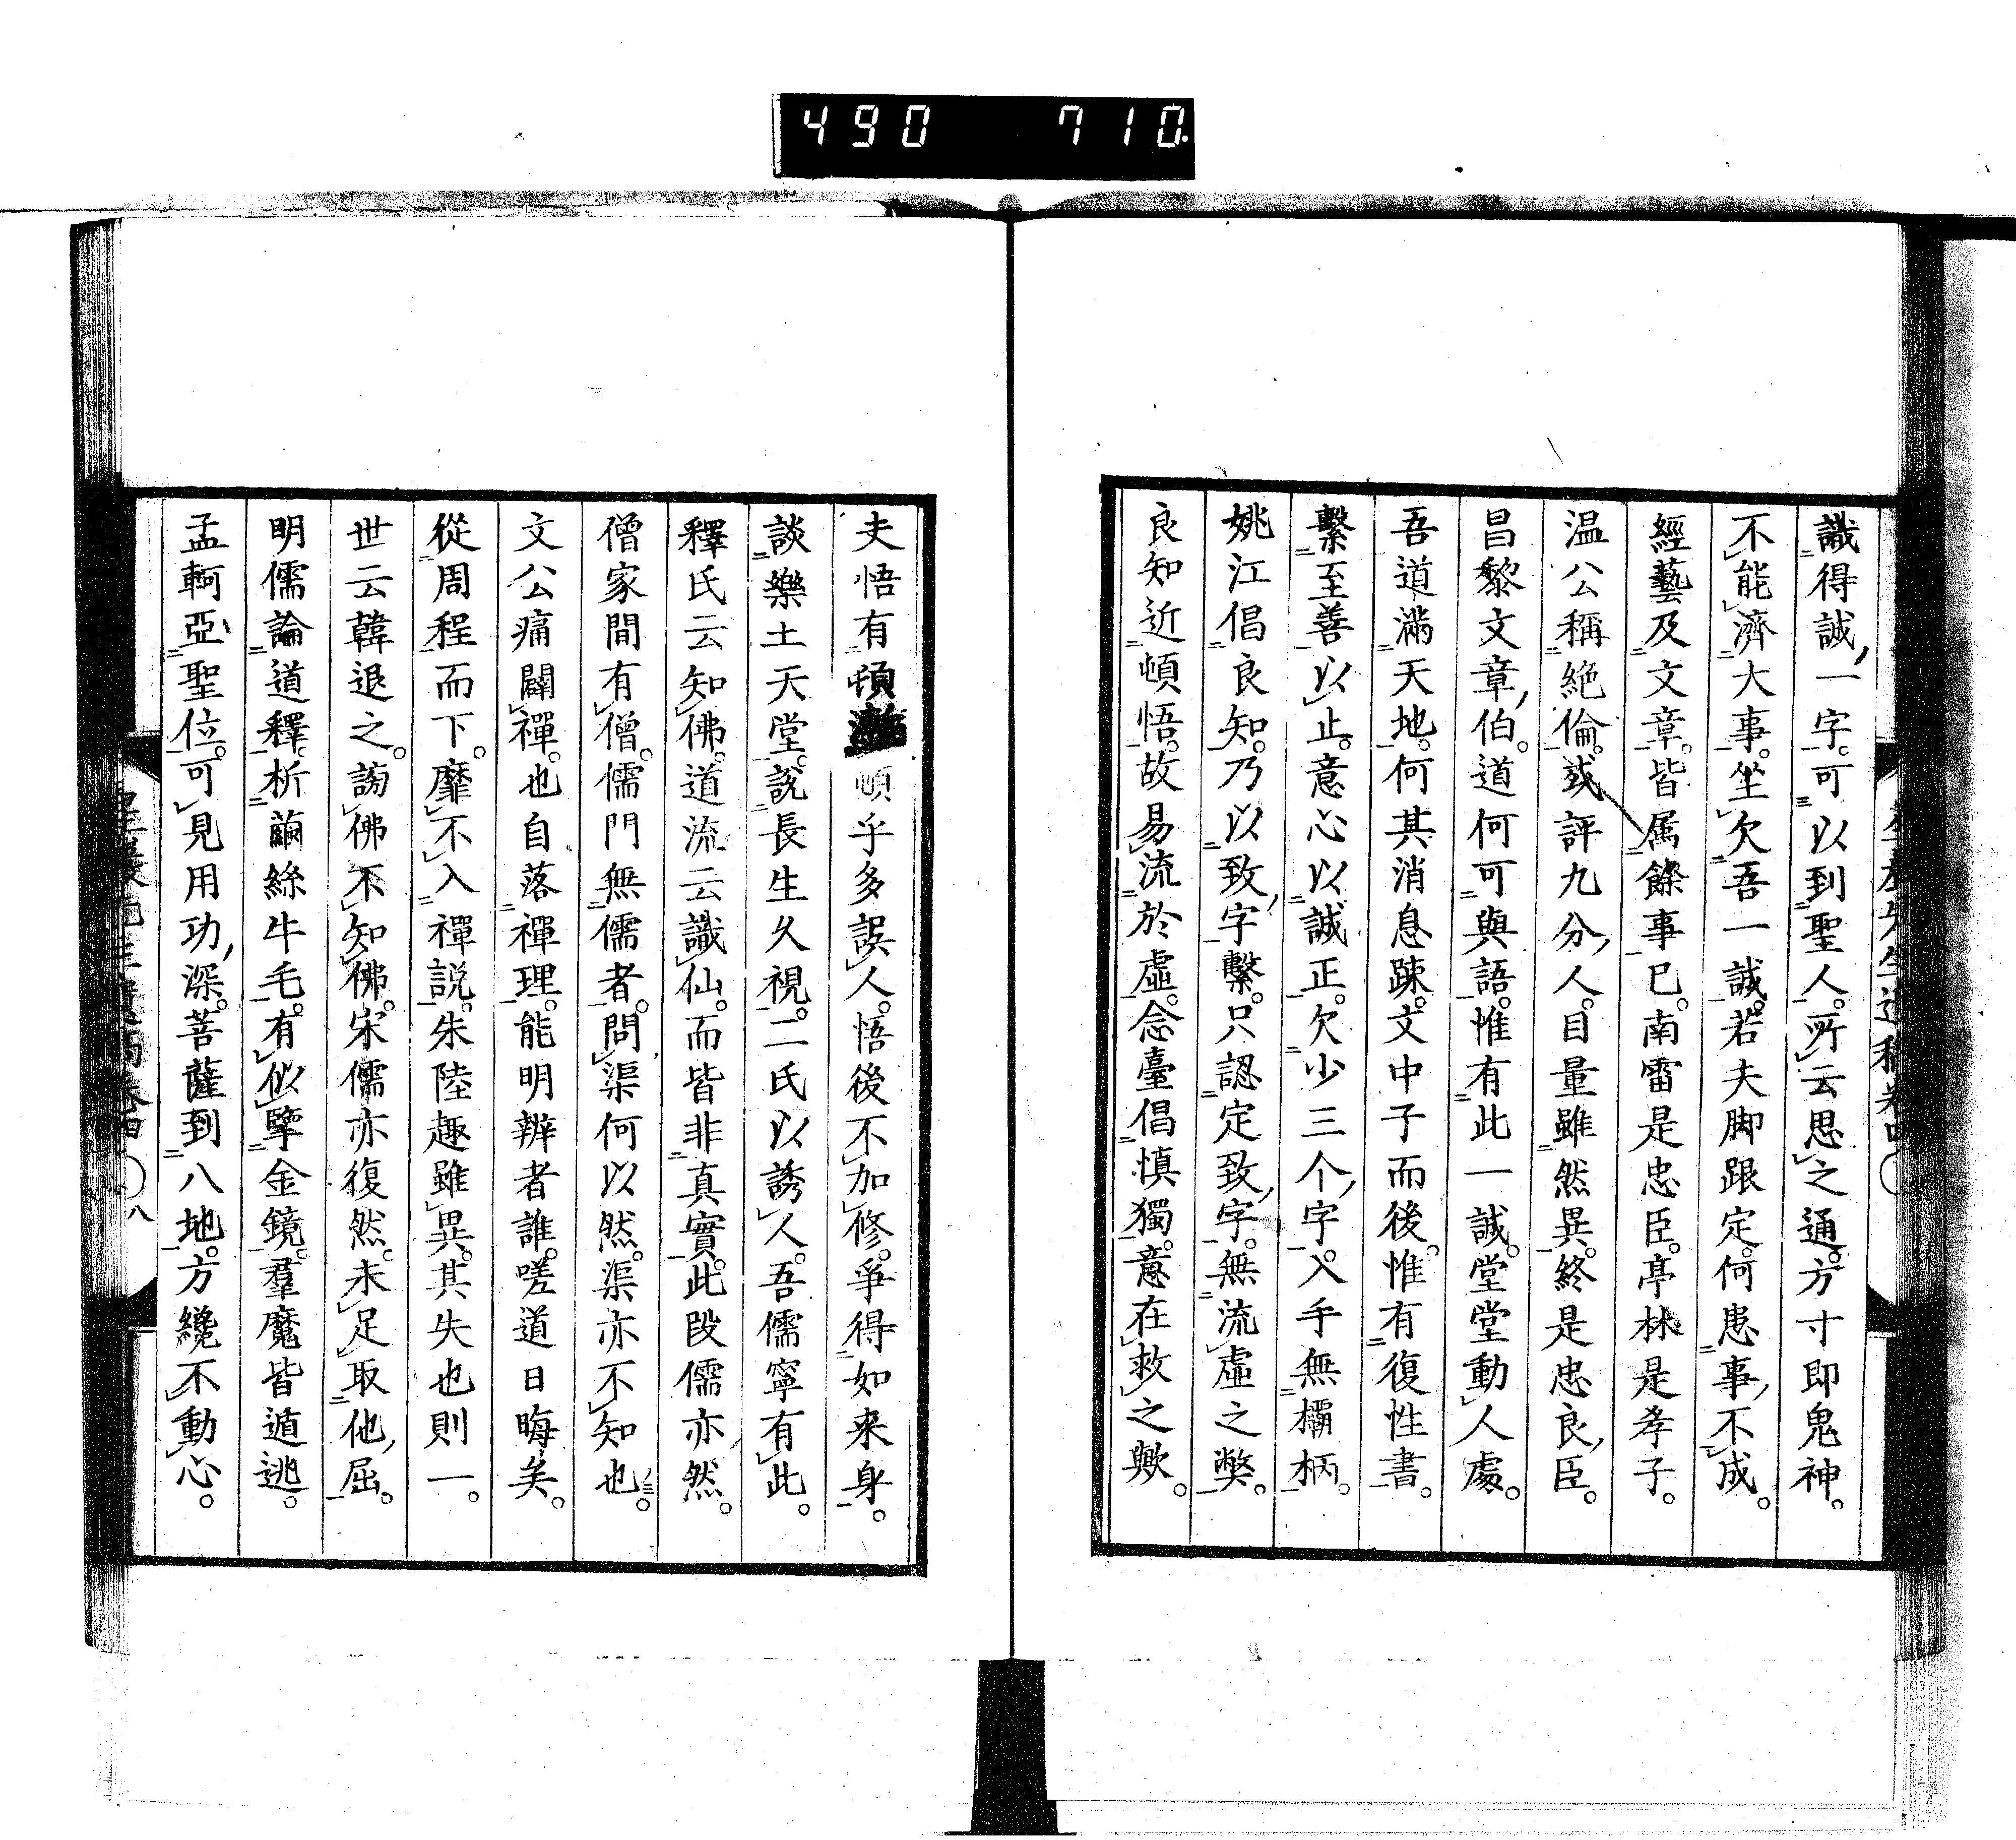 490 710.
識得誠一字。可以到聖人。所云思之通。方寸即鬼神。
不能濟大事。坐欠吾一誠。若夫脚跟定。何患事不成。
經藝及文章。皆属餘事已。南雷是忠臣。亭林是孝子。
温公稱絶倫。或評九分人。自量雖然異。終是忠良臣。
昌黎文章伯。道何可與語。惟有此一誠。堂堂動人處。
吾道滿天地。何其消息踈。文中子而後。惟有復性書。
繫至善以止。意心以誠正。欠少三个字。入手無欛柄。
姚江倡良知。乃以致字繫。只認定致字。無流虛之獘。
良知近頓悟。故易流於虛。念臺倡慎獨。意在救之歟。
夫悟有頓漸頓乎多誤人。悟後不加修。爭得如来身。
談樂土天堂。説長生久視。二氏以誘人。吾儒寧有此。
釋氏云知佛。道流云識仙。而皆非真實。此段儒亦然。
僧家間有僧。儒門無儒者。問渠何以然。渠亦不知也。
文公痛闢禪。也自落禪理。能明辨者誰。嗟道日晦矣。
從周程而下。靡不入禪説。朱陸趣雖異。其失也則一。
世云韓退之。謗佛不知佛。宋儒亦復然。未足取他屈。
明儒論道釋。析繭絲牛毛。有似擎金鏡。羣魔皆遁逃。
孟軻亞聖位。可見用功深。菩薩到八地。方纔不動心。
八